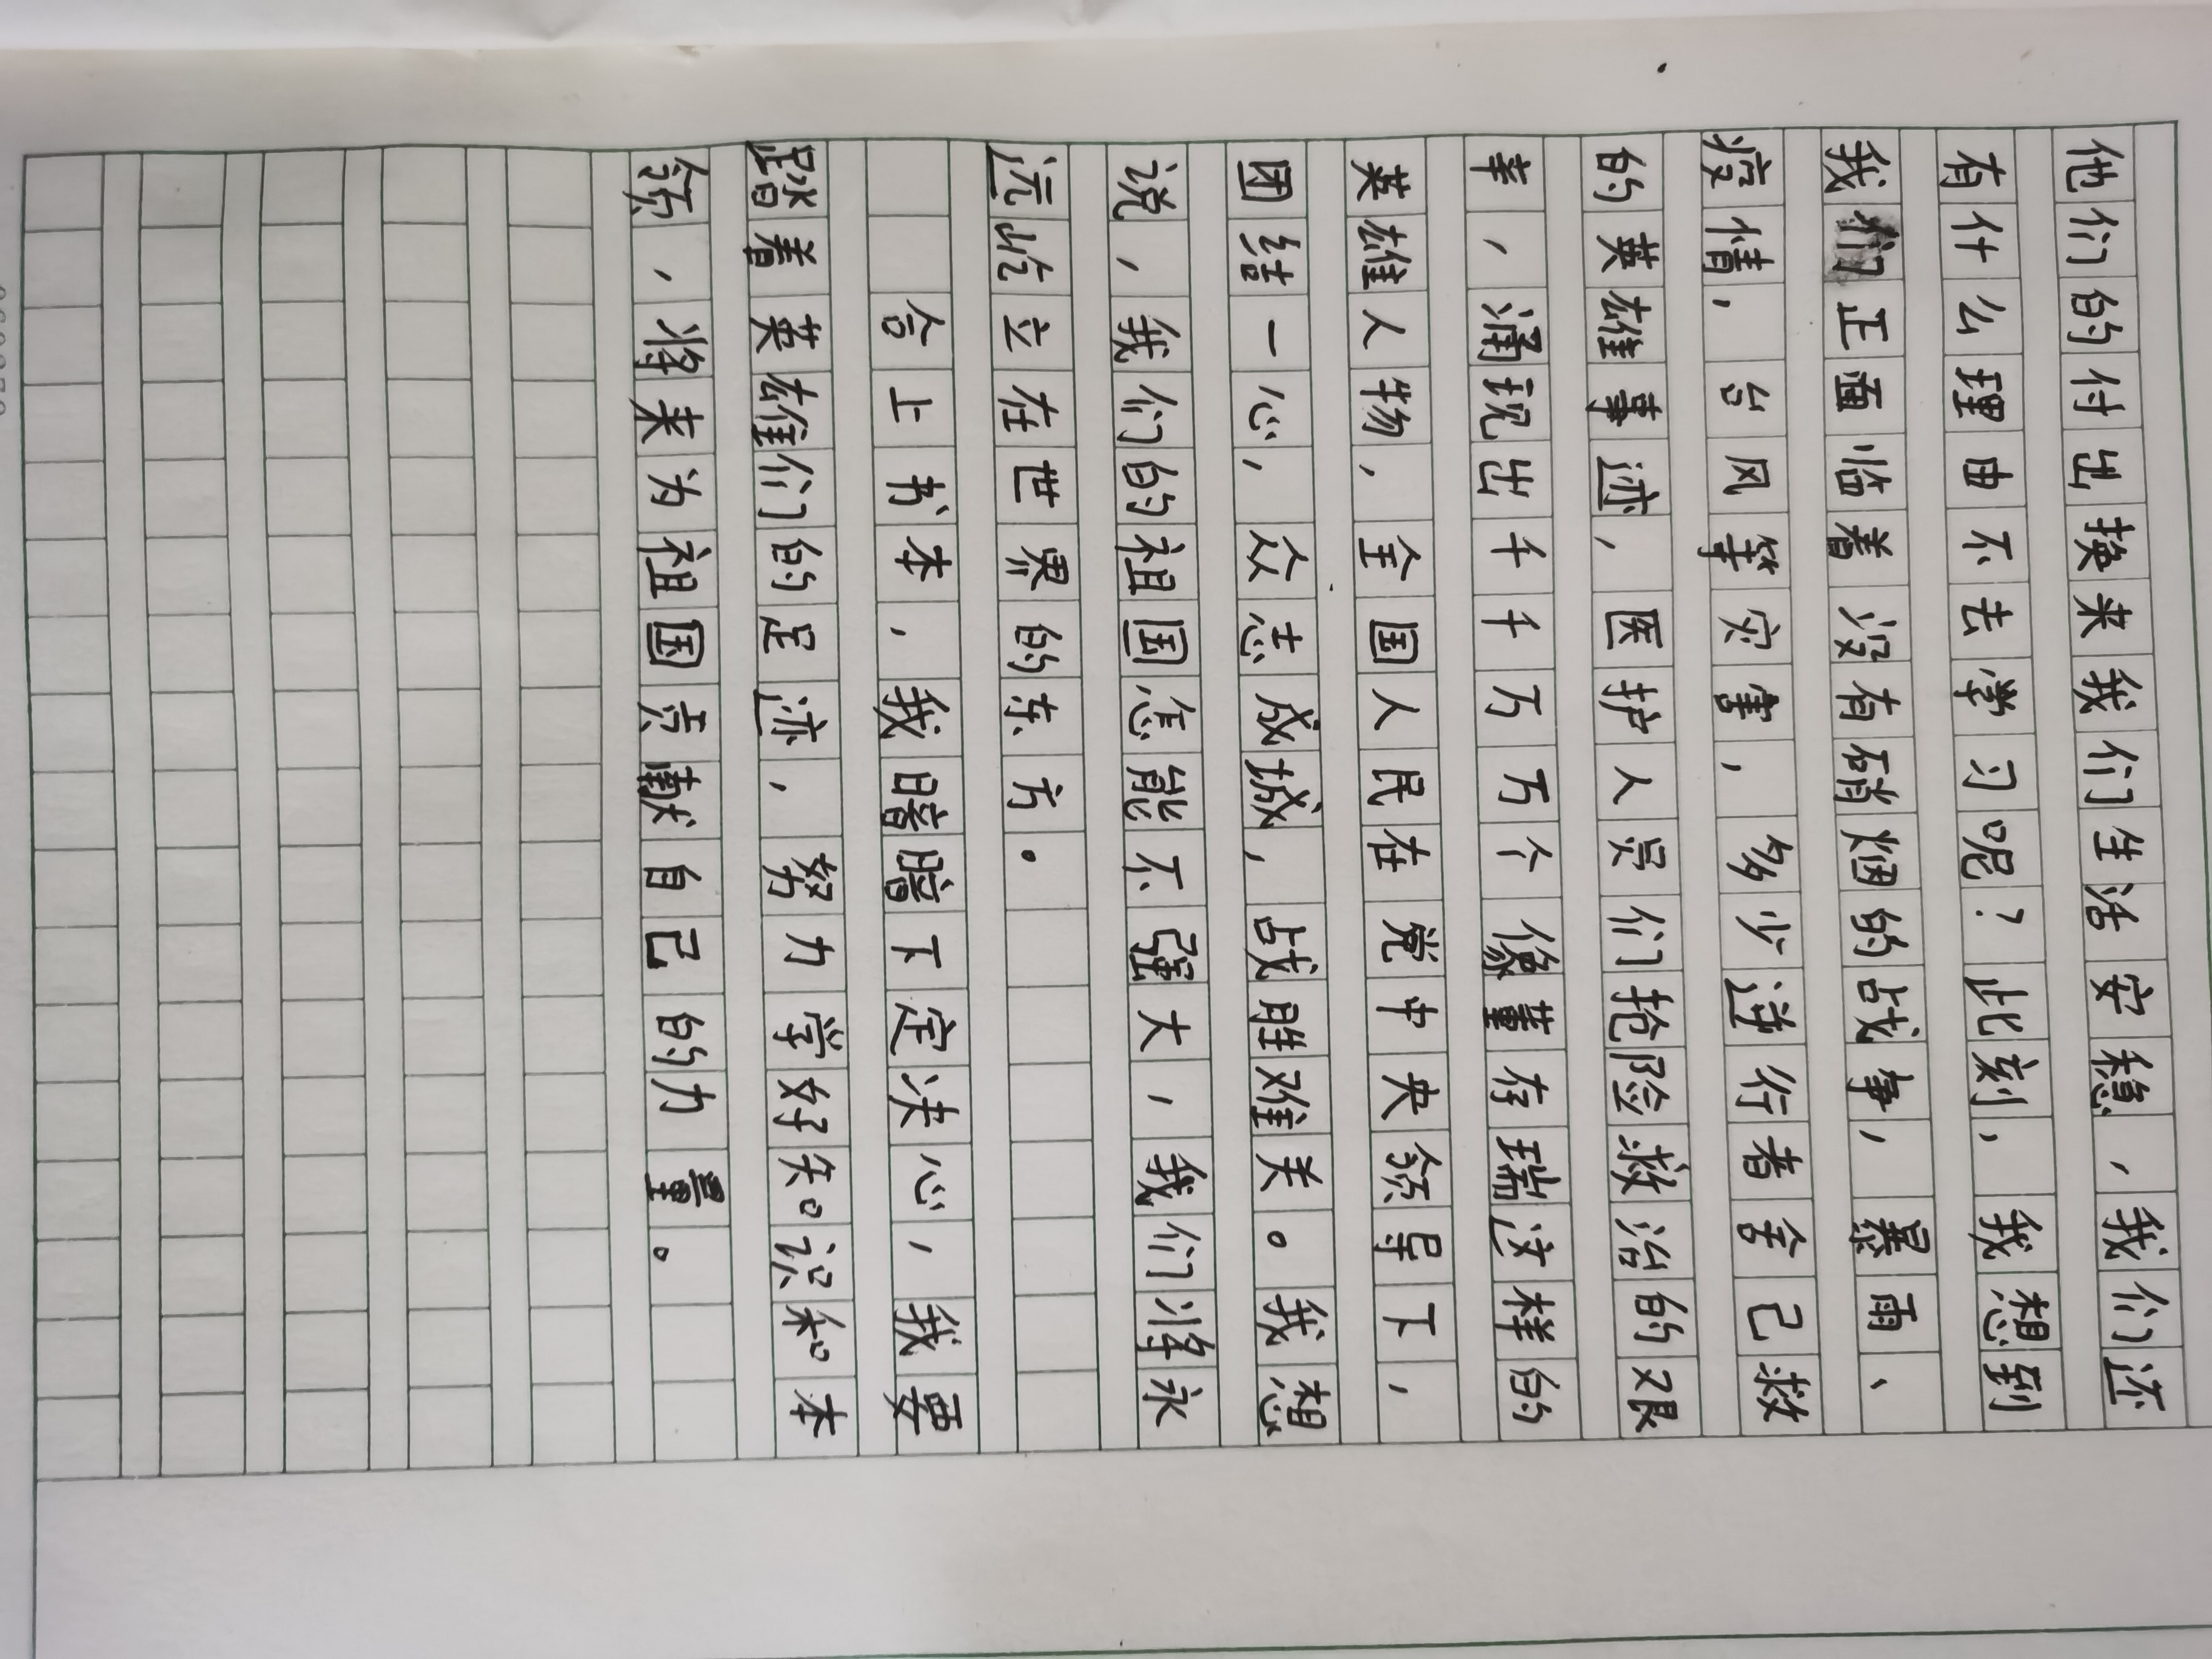 他们的付出换来我们生活安稳，我们还
有什么理由不去学习呢？此刻，我想到
我们正面临着没有硝烟的战事，暴雨、
疫情，台风等灾害，多少逆行者舍己救
的英雄事迹，医护人员们抢险救治的艰
辛，涌现出千千万万个像董存瑞这样的
英雄人物，全国人民在党中央领导下，
团结一心，众志成城，战胜难关。我想
说，我们的祖国怎能不强大，我们将永
远屹立在世界的东方。
合上书本，我暗暗下定决心，我要
踏着英雄们的足迹，努力学好知识和本
领，将来为祖国贡献自己的力量。